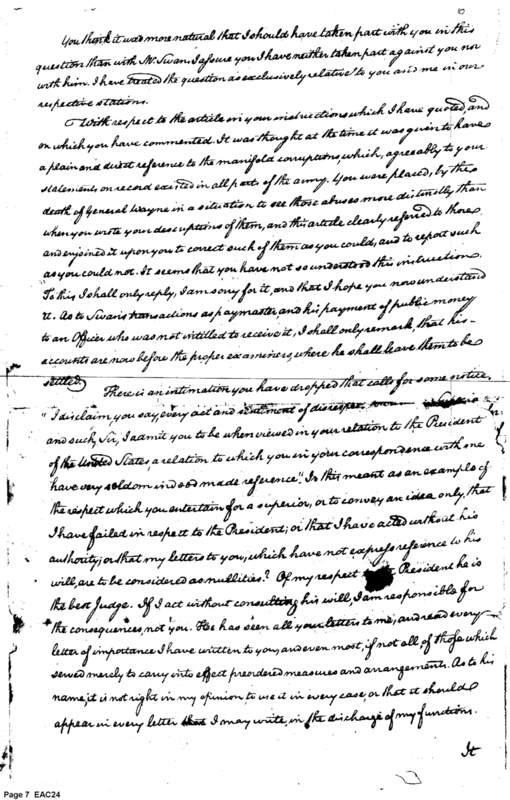 You think it was more natural that I should have taken part with you in this
question than with Mr. Swan. I assure you I have neither taken part against you nor
with him. I have treated the question as exclusively relative to you and me in our
respective stations.
With respect to the article in your instructions which I have quoted, and
on which you have commented. It was thought at the time it was given to have
a plain and direct reference to the manifold corruptions, which, agreeably to your
statements on record existed in all parts of the army. You were placed, by the
death of General Wayne in a situation to see those abuses more distinctly than
when you wrote your descriptions of them, and this article clearly referred to those
and enjoined it upon you to correct such of them as you could, and to report such
as you could not. It seems that you have not so understood this instruction.
To this I shall only reply, I am sorry for it, and that I hope you now understand
it. As to Swan's transactions as paymaster and his payment of public money
to an Officer who was not intitled to receive it, I shall only remark, that his
accounts are now before the proper examiners, where he shall leave them to be
settled.
There is an intimation you have dropped that calls for some notice,
"I disclaim you say, every act and sentiment of disrespect
and such, Sir, I admit you to be when viewed in your relation to the President
of the United States, a relation to which you in your correspondence with me
have very seldom indeed made reference". Is this meant as an example of
the respect which you entertain for a superior, or to convey an idea only, that
I have failed in respect to the President; or that I have acted without his
authority; or that my letters to you, which have not express reference to his
will, are to be considered as nullities? Of my respect President he is
the best Judge. If I act without consulting his will, I am responsible for
the consequences, not you. He has seen all your letters to me, and read every
letter of importance I have written to you, and even most, if not all, of those which
served merely to carry into effect preordered measures and arrangements. As to his
name, it is not right in my opinion to use it in every case, or that it should
appear in every letter that I may write, in the discharge of my functions.
It
Page 7 EAC24